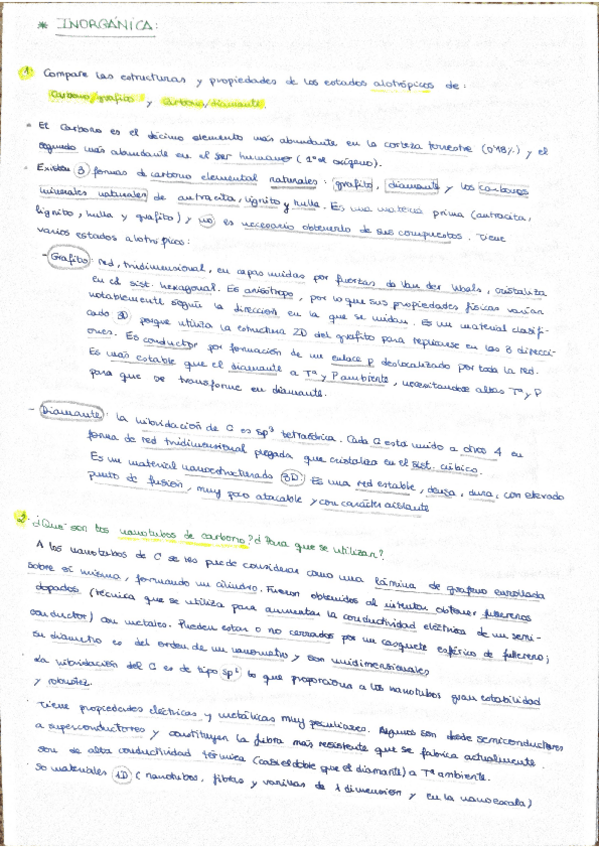 * INORGÁNICA:
1. Compare las estructuras y propiedades de los estados alotrópicos de:
Carbono/grafito y Carbono/diamante.
• El Carbono es el décimo elemento más abundante en la corteza terrestre (0'18%) y el
segundo más abundante en el ser humano (1º el oxígeno).
• Existen 3 formas de carbono elemental naturales: grafito, diamante y los carbones
minerales naturales de antracita, lignito y hulla. Es una materia prima (antracita,
lignito, hulla y grafito) y no es necesario obtenerlo de sus compuestos. Tiene
varios estados alotrópicos:
- Grafito: red, tridimensional, en capas unidas por fuerzas de Van der Waals, cristaliza
en el sist. hexagonal. Es anisótropo, por lo que sus propiedades físicas varían
notablemente según la dirección en la que se midan. Es un material clasifi-
cado 3D porque utiliza la estructura 2D del grafito para repetirse en las 3 direcci-
ones. Es conductor por formación de un enlace deslocalizado por toda la red.
Es más estable que el diamante a Tª y P ambiente, necesitandose altas Tª y P
para que se transforme en diamante.
- Diamante: la hibridación de C es sp³ tetraédrica. Cada C está unido a otros 4 en
forma de red tridimensional plegada que cristaliza en el sist. cúbico.
Es un material nanoestructurado 3D: Es una red estable, densa, dura, con elevado
punto de fusión, muy poco atacable y con carácter aislante
2. ¿Qué son los nanotubos de carbono? ¿Para que se utilizan?
A los nanotubos de C se les puede considerar como una lámina de grafeno enrollada
sobre sí misma, formando un cilindro. Fueron obtenidos al intentar obtener fulerenos
dopados (técnica que se utiliza para aumentar la conductividad eléctrica de un semi-
conductor) con metales. Pueden estar o no cerrados por un casquete esférico de fulereno;
su diámetro es del orden de un nanometro y son unidimensionales
• La hibridación del C es de tipo sp² lo que proporciona a los nanotubos gran estabilidad
y robustez.
• Tiene propiedades eléctricas y metálicas muy peculiares. Algunos son desde semiconductores
a superconductores y constituyen la fibra más resistente que se fabrica actualmente.
• Son de alta conductividad térmica (casi el doble que el diamante) a Tª ambiente.
• So materiales 1D (nanotubos, fibras y varillas de 1 dimension y en la nanoescala)